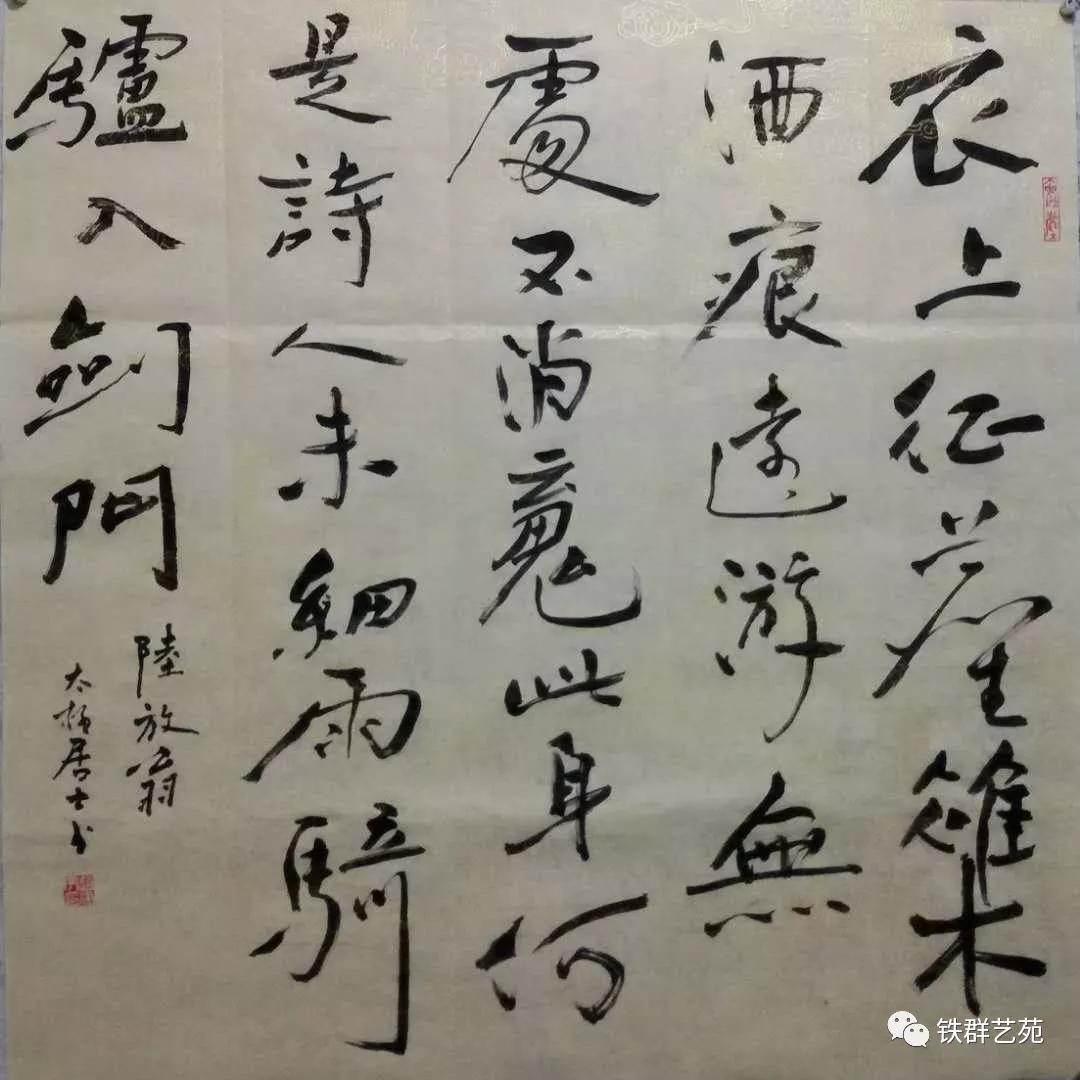 衣上征塵雜
酒痕遠游無
處不消魂此身何
是詩人未細雨騎
驢入劍門
陸放翁
太極居士书
铁群艺苑